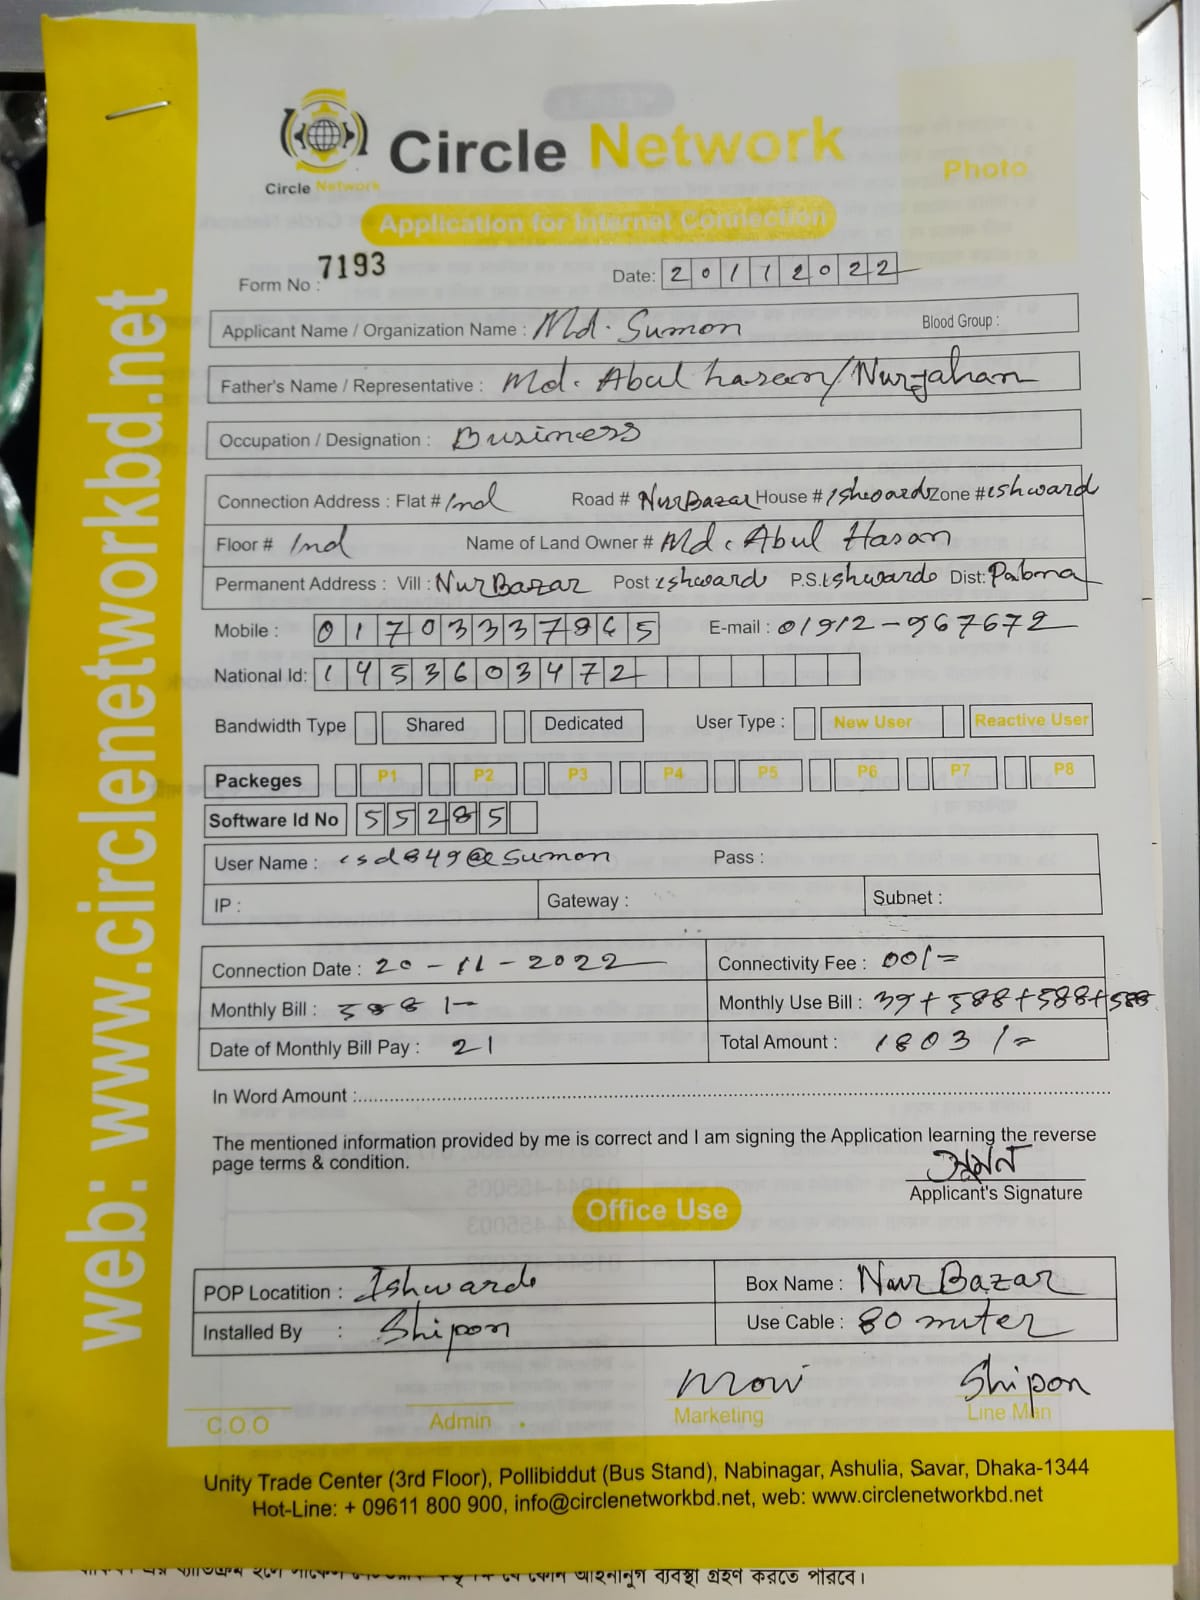 Circle Network
Circle Network
Photo
Application for Internet Connection
Form No : 7193
Date: 20112022
Applicant Name / Organization Name : Md. Sumon Blood Group :
Father's Name / Representative : Md. Abul hasan/Nurjahan
Occupation / Designation : Business
Connection Address : Flat # Ind Road # NurBazar House # ishwardi Zone # ishward
Floor # Ind Name of Land Owner # Md. Abul Hasan
Permanent Address : Vill : NurBazar Post ishwardi P.S. ishwardi Dist: Pabna
Mobile : E-mail : 01912-967672
National Id: 1453603472
Bandwidth Type Shared Dedicated User Type : New User Reactive User
Packeges P1 P2 P3 P4 P5 P6 P7 P8
Software Id No 55285
User Name : isd849@sumon Pass :
IP : Gateway : Subnet :
Connection Date : 20-11-2022 Connectivity Fee : 00/=
Monthly Bill : 588/= Monthly Use Bill : 39+588+588+588
Date of Monthly Bill Pay : 21 Total Amount : 1803/=
In Word Amount :
The mentioned information provided by me is correct and I am signing the Application learning the reverse
page terms & condition.
সুমন
Applicant's Signature
Office Use
POP Locatition : Ishwardi Box Name : Nur Bazar
Installed By : Shipon Use Cable : 80 miter
Mowi Shipon
C.O.O Admin Marketing Line Man
Unity Trade Center (3rd Floor), Pollibiddut (Bus Stand), Nabinagar, Ashulia, Savar, Dhaka-1344
Hot-Line: + 09611 800 900, info@circlenetworkbd.net, web: www.circlenetworkbd.net
web: www.circlenetworkbd.net
ব্যবস্থা গ্রহণ করতে পারবে।